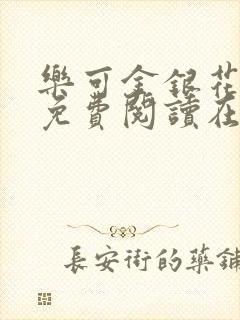 樂可金銀花
免費閱讀在
長安街的藥鋪